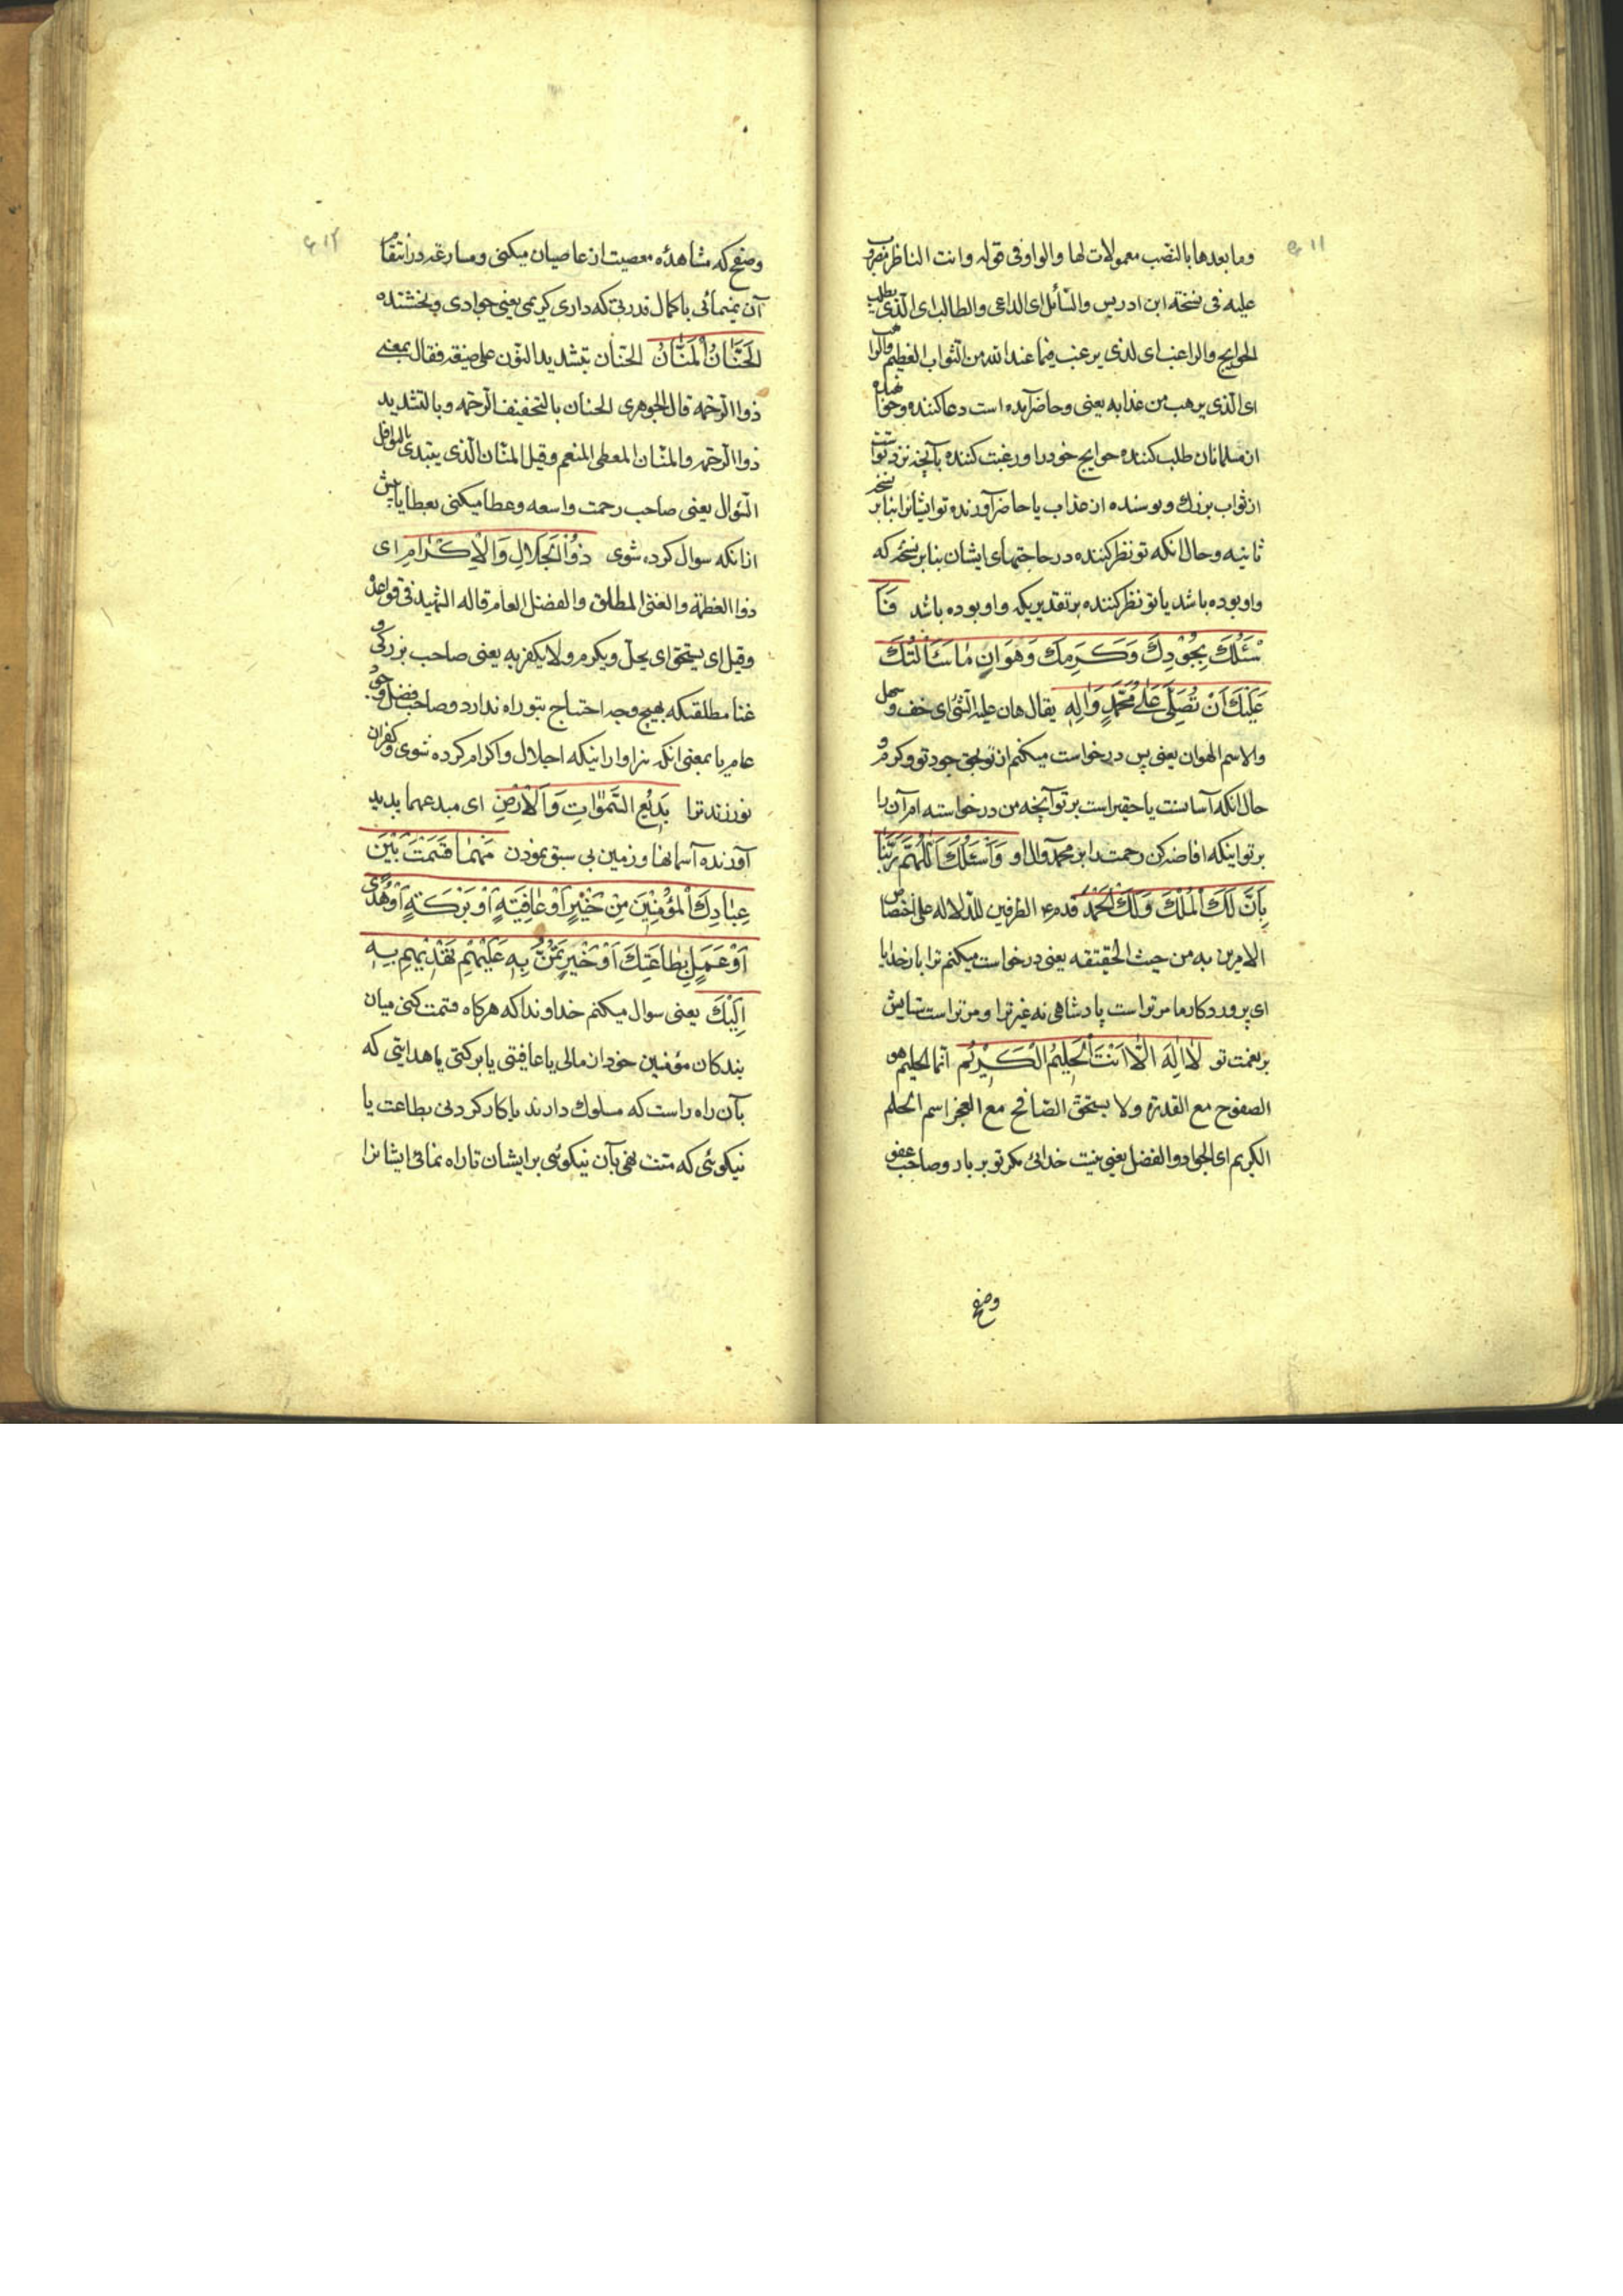 ۶۱۱
وما بعدها بالنصب معمولات لها والواو فی قوله وانت الناظر مضروب
علیه فی نسخة ابن ادریس والسّائل ای الداعی والطالب ای الّذی یطلب
الحوایج والراغب ای لذی یرغب فیما عند الله من الثواب العظیم والراهب
ای الّذی یرهب من عذابه یعنی وحاضر آمده است دعا کننده وخواهنده
از مسلمانان طلب کننده حوایج خود را ورغبت کننده بآنچه نزد تواست
از ثواب بزرك و ترسنده از عذاب یا حاضر آورنده تو ایشانرا بنابر نسخه
ثانیه وحال آنکه تو نظر کننده در حاجتهای ایشان بنا بر نسخه که
واو بوده باشد یا تو نظر کننده بر تقدیریکه واو بوده باشد فَاَ
سْئَلُكَ بِجُوْدِكَ وَكَرَمِكَ وَهَوَانِ مٰا سَئَالْتُكَ
عَلَيْكَ اَنْ تُصَلِّىَ عَلٰى مُحَمَّدٍ وَاٰلِهِ یقال هان علیه الشئ ای خف وسهل
والاسم الهوان یعنی پس درخواست میکنم از تو بحق جود تو وکرم تو و
حال آنکه آسانست یا حقیر است بر تو آنچه من درخواسته ام آن را
بر تو اینکه افاضه کن رحمت را بر محمد وآل او وَاَسْئَلُكَ اَللّٰهُمَّ رَبَّنٰا
بِاَنَّ لَكَ اَلْمُلْكَ وَلَكَ اَلْحَمْدُ قدم الظرفین للدّلاله علی اختصاص
الامرین به من حیث الحقیقه یعنی درخواست میکنم ترا بار خدایا
ای پروردکار ما مر تراست پادشاهی نه غیر ترا و مر تراست ستایش
بر نعمت تو لٰا اِلٰهَ اِلّٰا اَنْتَ اَلْحَلِيْمُ الْكَرِيْمُ انّما الحلیم هو
الصفوح مع القدرة ولا یستحق الصّافح مع العجز اسم الحلم
الکریم ای الجواد والفضل یعنی نیست خدائی مکر تو بردبار وصاحب عفو
وصفح
۶۱۲
وصفح که مشاهدهٔ معصیت از عاصیان میکنی ومسارعه در انتقام
آن نمینمائی با کمال قدرتی که داری کریمی یعنی جوادی وبخشنده
اَلْحَنَّانُ اَلْمَنَّانُ الحنّان بتشدید النون علی صیغه فعّال بمعنی
ذو الرحمة قال الجوهری الحنان بالتخفیف الرّحمه وبالتشدید
ذو الرحمه والمنّان المعطی المنعم وقیل المنّان الّذی یبتدی بالنوال قبل
السّؤال یعنی صاحب رحمت واسعه وعطا میکنی بعطایا پیش
از آنکه سوال کرده شوی ذُوْ اَلْجَلَالِ وَالْاِكْرٰامِ ای
ذو العظمة والغنی المطلق والفضل العام قاله الشهید فی قواعده
وقیل ای یستحق ای یجلّ ویکرم ولا یکفر به یعنی صاحب بزرکی و
غنا مطلقیکه بهیچ وجه احتیاج بتو راه ندارد وصاحب فضل وجود
عام یا بمعنی آنکه سزاوار اینکه اجلال واکرام کرده شوی وکفران
نورزند ترا بَدِيْعُ السَّمٰوٰاتِ وَالْاَرْضِ ای مبدعهما پدید
آورنده آسمانها وزمین بی سبق نمودن مَهْمٰا قَسَمْتَ بَيْنَ
عِبٰادِكَ الْمُؤْمِنِيْنَ مِنْ خَيْرٍ اَوْ عٰافِيَةٍ اَوْ بَرَكَةٍ اَوْ هُدًى
اَوْ عَمَلٍ بِطٰاعَتِكَ اَوْ خَيْرٍ تَمُنُّ بِهِ عَلَيْهِمْ تَهْدِيْهِمْ بِهِ
اِلَيْكَ یعنی سوال میکنم خداوندا که هرکاه قسمت کنی میان
بندکان مؤمنین خود از مالی یا عافیتی یا برکتی یا هدایتی که
بآن راه راست که سلوك دارند یا کار کردنی بطاعت یا
نیکوئی که منّت نهی بآن نیکوئی برایشان تا راه نمائی ایشانرا